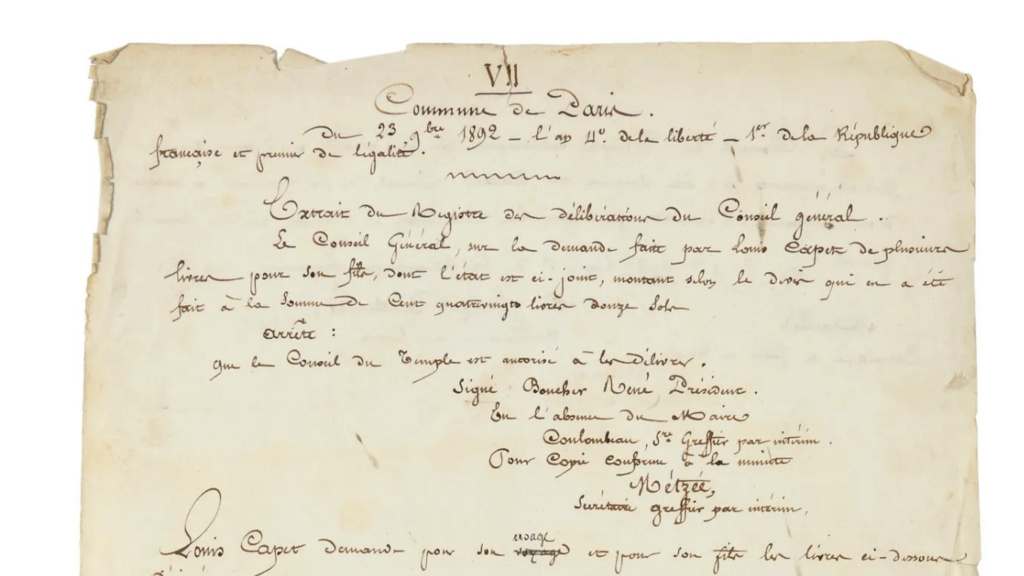 VII
Commune de Paris.
Du 23 9bre 1892 – l'an 4e. de la liberté – 1er. de la République
française et premier de l'égalité.
Extrait du Registre des délibérations du Conseil général.
Le Conseil Général, sur la demande fait par Louis Capet de plusieurs
livres pour son fils, dont l'état est ci-joint, montant selon le devis qui en a été
fait à la somme de Cent quatrevingts livres douze sols
arrête :
que le Conseil du Temple est autorisé à les délivrer.
Signé Boucher René, Président.
En l'absence du Maire
Coulombeau, Sre Greffier par intérim.
Pour Copie conforme à la minute
Métzée,
Secrétaire greffier par intérim,
Louis Capet demande pour son usage et pour son fils les livres ci-dessous